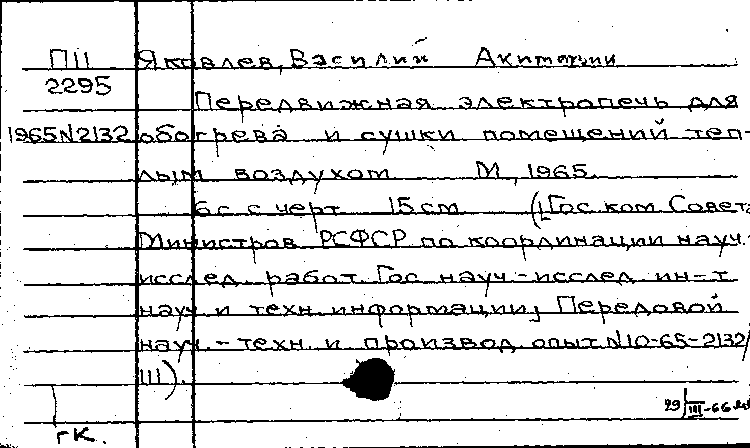 П11 Яковлев, Василий
2295
Передвижная электропечь для
1965 N2132 обогрева и сушки помещений теп-
лым воздухом М., 1965.
6 с с черт 15 см ([Гос ком Совета
Министров РСФСР по координации науч.-
исслед. работ. Гос науч.-исслед. ин-т
науч и техн. информации] Передовой
науч.-техн. и производ. опыт N10-65-2132/
III).
29/III-66
ГК.